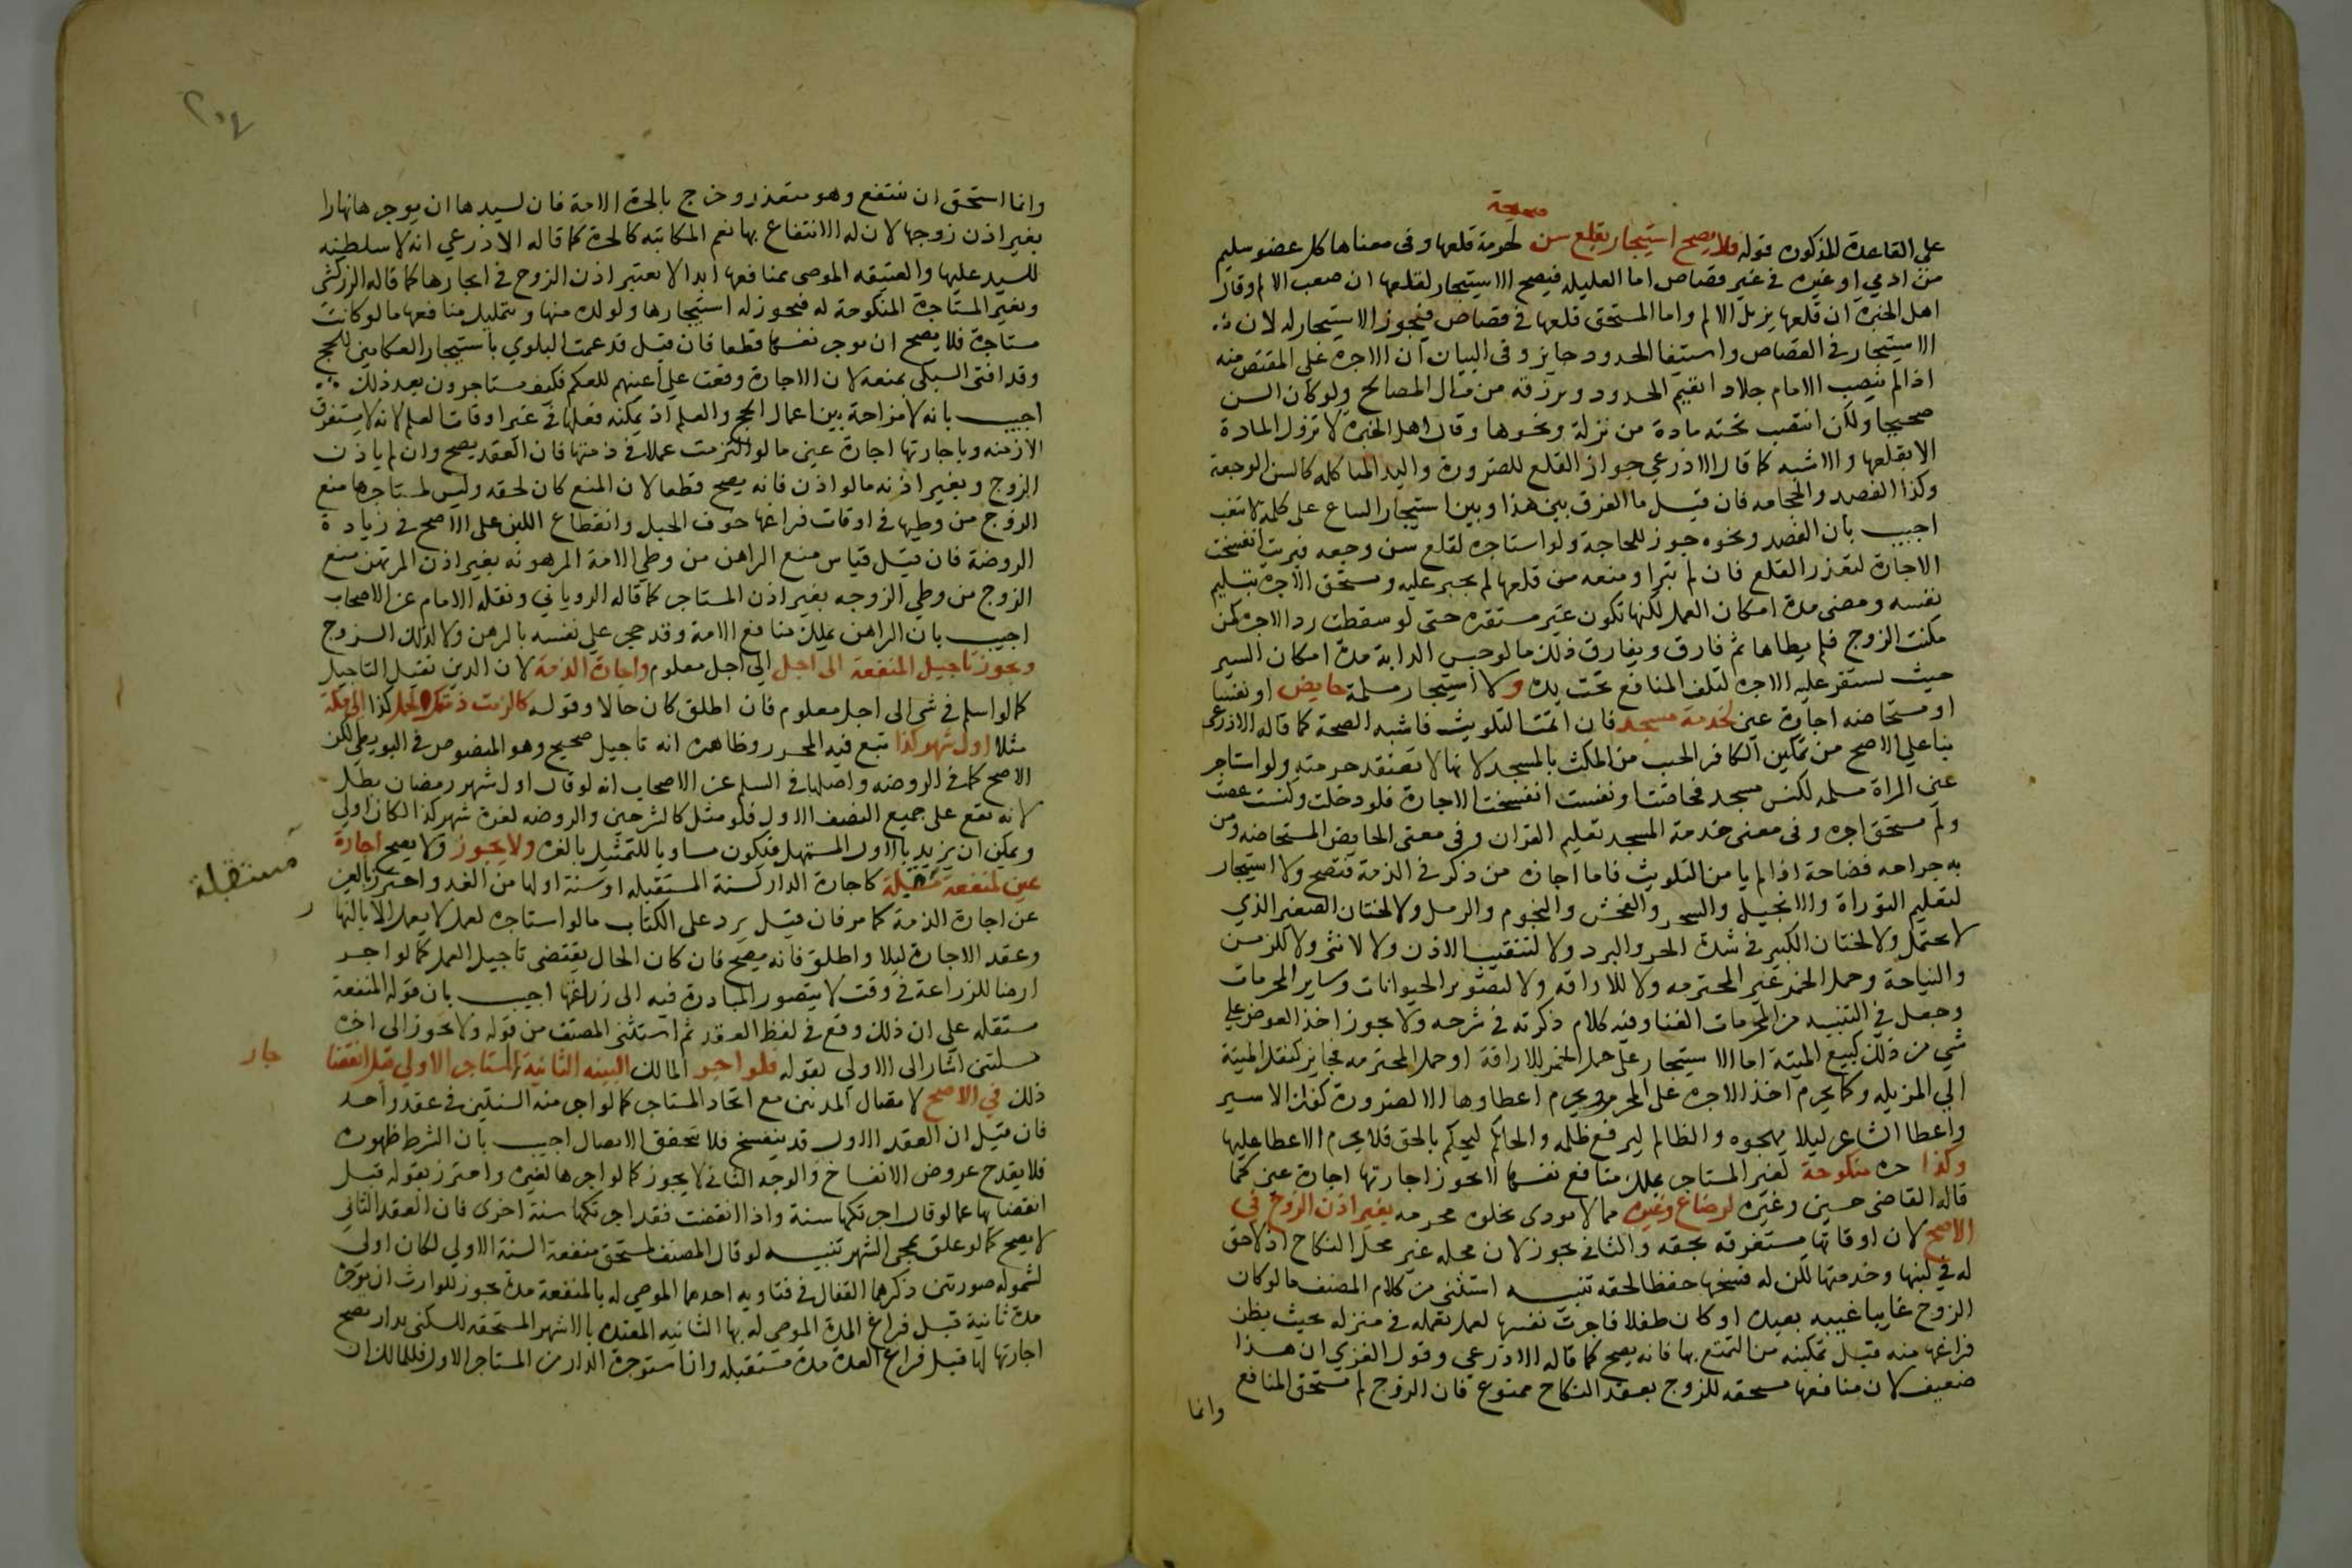 صحيحة
على القاعدة المذكورة قوله فلا يصح استيجار بقلع سن لحرمة قلعها وفى معناها كل عضو سليم
من ادمي او غيره في غير قصاص اما العليله فيصح الاستيجار لقلعها ان صعب الالم وقال
اهل الخبرة ان قلعها يزيل الالم واما المستحق قلعها في قصاص فيجوز الاستيجار له لان
الاستيجار في القصاص واستيفا الحدود جايز وفى البيان ان الاجرة على المقتص منه
اذا لم ينصب الامام جلادا يقيم الحدود ويرزقه من مال المصالح ولو كان السن
صحيحا ولكن انتقب تحته مادة من نزلة ونحوها وقال اهل الخبرة لا تزول المادة
الا بقلعها والاشبه كما قال الاذرعي جواز القلع للضرورة واليد المتاكله كالسن الوجعة
وكذا الفصد والحجامه فان قيل ما الفرق بين هذا وبين استيجار البياع على كلمة لا تتعب
اجيب بان الفصد ونحوه جوز للحاجة ولو استاجره لقلع سن وجعه فبريت انفسخت
الاجارة لتعذر القلع فان لم تبرا ومنعه من قلعها لم يجبر عليه ويستحق الاجرة بتسليم
نفسه ومضى مدة امكان العمل لكنها تكون غير مستقره حتى لو سقطت رد الاجرة كمن
مكنت الزوج فلم يطاها ثم فارق ويفارق ذلك ما لو حبس الدابة مدة امكان السير
حيث تستقر عليه الاجره لتلف المنافع تحت يده ولا استيجار مسلمة حايض او نفسا
او مستحاضه اجارة عين لخدمة مسجد فان امنت التلويث فاشبه الصحة كما قاله الاذرعي
بنا على الاصح من تمكين الكافر الجنب من المكث بالمسجد لانها لا تعتقد حرمته ولو استاجر
عين امراة مسلمه لكنس مسجد فحاضت او نفست انفسخت الاجارة فلو دخلت وكنست عصت
ولم تستحق اجره وفى معنى خدمة المسجد تعليم القران وفى معنى الحايض المستحاضه ومن
به جراحه نضاحة اذا لم يامن التلويث فاما اجارة من ذكر في الذمة فتصح ولا استيجار
لتعليم التوراة والانجيل والسحر والفحش والنجوم والرمل ولا لختان الصغير الذي
لا يحتمل ولا لختان الكبير في شدة الحر والبرد ولا لتثقيب الاذن ولا لانثى ولا للزمر
والنياحة وحمل الخمر غير المحترمه ولا للاراقه ولا لتصوير الحيوانات وساير المحرمات
وجعل في التنبيه من المحرمات الغنا وفيه كلام ذكرته في شرحه ولا يجوز اخذ العوض على
شي من ذلك كبيع الميتة اما الاستيجار على حمل الخمر للاراقة او حمل المحترمه فجايز كنقل الميتة
الي المزبله وكما يحرم اخذ الاجره على المحرم يحرم اعطاوها الا لضرورة كفك الاسير
واعطا الشاعر ليلا يهجوه والظالم ليرفع ظلمه والحاكم ليحكم بالحق فلا يحرم الاعطا عليها
وكذا حره منكوحة لغير المستاجر يملك منافع نفسها لا يجوز اجارتها اجارة عين كما
قاله القاضي حسين وغيره لرضاع وغيره مما لا يودى لخلوه محرمه بغير اذن الزوج في
الاصح لان اوقاتها مستغرقه بحقه والثاني يجوز لان محله غير محل النكاح اذ لا حق
له في لبنها وخدمتها لكن له فسخها حفظا لحقه تنبيه استثنى من كلام المصنف ما لو كان
الزوج غايبا غيبه بعيده او كان طفلا فاجرت نفسها لعمل تعمله في منزله بحيث يظن
فراغها منه قبل تمكينه من التمتع بها فانه يصح كما قاله الاذرعي وقول الغزي ان هذا
ضعيف لان منافعها مستحقه للزوج بعقد النكاح ممنوع فان الزوج لم يستحق المنافع
وانما
وانما استحق ان ينتفع وهو متعذر وخرج بالحرة الامة فان لسيدها ان يوجرها نهارا
بغير اذن زوجها لان له الانتفاع بها نعم المكاتبه كالحرة كما قاله الاذرعي انه لا سلطنه
للسيد عليها والعتيقه الموصى بمنافعها ابدا لا يعتبر اذن الزوج في ايجارها كما قاله الزركشي
وبغير المستاجرة المنكوحة له فيجوز له استيجارها ولو لولده منها وبتمليك منافعها ما لو كانت
مستاجرة فلا يصح ان توجر نفسها قطعا فان قيل قد عمت البلوي باستيجار العكامين للحج
وقد افتى السبكي بمنعه لان الاجارة وقعت على اعينهم للعكم فكيف يستاجرون بعد ذلك
اجيب بانه لا مزاحمة بين اعمال الحج والعلم اذ يمكنه فعلها في غير اوقات العلم لانه لا يستغرق
الازمنه وباجارتها اجارة عين ما لو التزمت عملا في ذمتها فان العقد يصح وان لم ياذن
الزوج وبغير اذنه ما لو اذن فانه يصح قطعا لان المنع كان لحقه وليس لمستاجرها منع
الزوج من وطيها في اوقات فراغها خوف الحبل وانقطاع اللبن على الاصح في زيادة
الروضة فان قيل قياس منع الراهن من وطي الامة المرهونه بغير اذن المرتهن منع
الزوج من وطي الزوجه بغير اذن المستاجر كما قاله الروياني ونقله الامام عن الاصحاب
اجيب بان الراهن يملك منافع الامة وقد حجر على نفسه بالرهن ولا كذلك الزوج
ويجوز تاجيل المنفعة الى اجل الى اجل معلوم واجارة الذمة لان الدين يقبل التاجيل
كما لو اسلم في شى الى اجل معلوم فان اطلق كان حالا وقوله كالزمت ذمتك الحمل كذا الى مكة
مثلا اول شهر كذا تبع فيه المحرر وظاهره انه تاجيل صحيح وهو المنصوص في البويطي لكن
الاصح كما في الروضه واصلها في السلم عن الاصحاب انه لو قال اول شهر رمضان بطل
لانه يقع على جميع النصف الاول فلو مثل كالشرحين والروضه لغرة شهر كذا لكان اولي
ويمكن ان يزيد بالاول المستهل فيكون مساويا للتمثيل بالغره ولا يجوز ولا يصح اجارة
مستقبلة
عين لمنفعة مستقبلة كاجارة الدار لسنة المستقبله او سنة اولها من الغد واحترز بالعين
عن اجارة الذمة كما مر فان قيل يرد على الكتاب ما لو استاجره لعمل لا يعمل الا بالنهار
وعقد الاجارة ليلا واطلق فانه يصح فان كان الحال يقتضى تاجيل العمل كما لو اجر
ارضا للزراعة في وقت لا يتصور المبادرة فيه الى زراعتها اجيب بان قوله لمنفعة
مستقله على ان ذلك وقع في لفظ العقد ثم استثنى المصنف من قوله ولا يجوز الى اخره
مسلتين اشار الى الاولي بقوله فلو اجر المالك السنه الثانية لمستاجر الاولي قبل انقضا
جاز
ذلك في الاصح لاتصال المدتين مع اتحاد المستاجر كما لو اجر منه السنتين في عقد واحد
فان قيل ان العقد الاول قد ينفسخ فلا يتحقق الاتصال اجيب بان الشرط ظهوره
فلا يقدح عروض الانفساخ والوجه الثاني لا يجوز كما لو اجرها لغيره واحترز بقوله قبل
انقضايها عما لو قال اجرتكها سنة واذا انقضت فقد اجرتكها سنة اخرى فان العقد الثاني
لا يصح كما لو علق بمجى الشهر تنبيه لو قال المصنف لمستحق منفعة السنة الاولي لكان اولي
لشموله صورتين ذكرهما القفال في فتاويه احدهما الموصي له بالمنفعة مدة يجوز للوارث ان يوجره
مدة ثانية قبل فراغ المدة الموصى له بها الثانيه المعتده بالاشهر المستحقه للسكنى بدار يصح
اجارتها لها قبل فراغ العدة مدة مستقبله وان استوجرة الدار من المستاجر الاول فللمالك ان